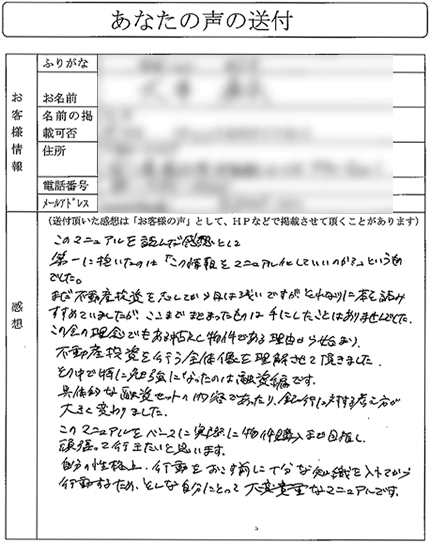 あなたの声の送付
お客様情報
ふりがな
お名前
名前の掲載可否
住所
電話番号
メールアドレス
感想
(送付頂いた感想は「お客様の声」として、HPなどで掲載させて頂くことがあります)
このマニュアルを読んだ感想として
第一に抱いたのは「この情報をマニュアル化していいのか?」というもの
でした。
まだ不動産投資を志してから日は浅いですがそれなりに本を読み
すすめていましたが、ここまでまとまったものは手にしたことはありませんでした。
この会の理念でもある 物件である理由から始まり、
不動産投資を行う全体像を理解させて頂きました。
その中で特に勉強になったのは融資編です。
具体的な融資セットの内容であったり、銀行に対する考え方が
大きく変わりました。
このマニュアルをベースに実際に物件購入まで目指し
頑張って行きたいと思います。
自分の性格上、行動をおこす前に十分な知識を入れてから
行動するため、そんな自分にとって大変貴重なマニュアルです。